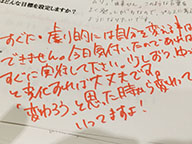 な目標を設定しますか?
すぐに・劇的には自分を変える事は
できません。今日気付いたので、あれば
すぐに実行して下さい。少しずつ、ゆっ
と変化すれば大丈夫です。
「変わろう」と思った時から変わって
いってますよ!